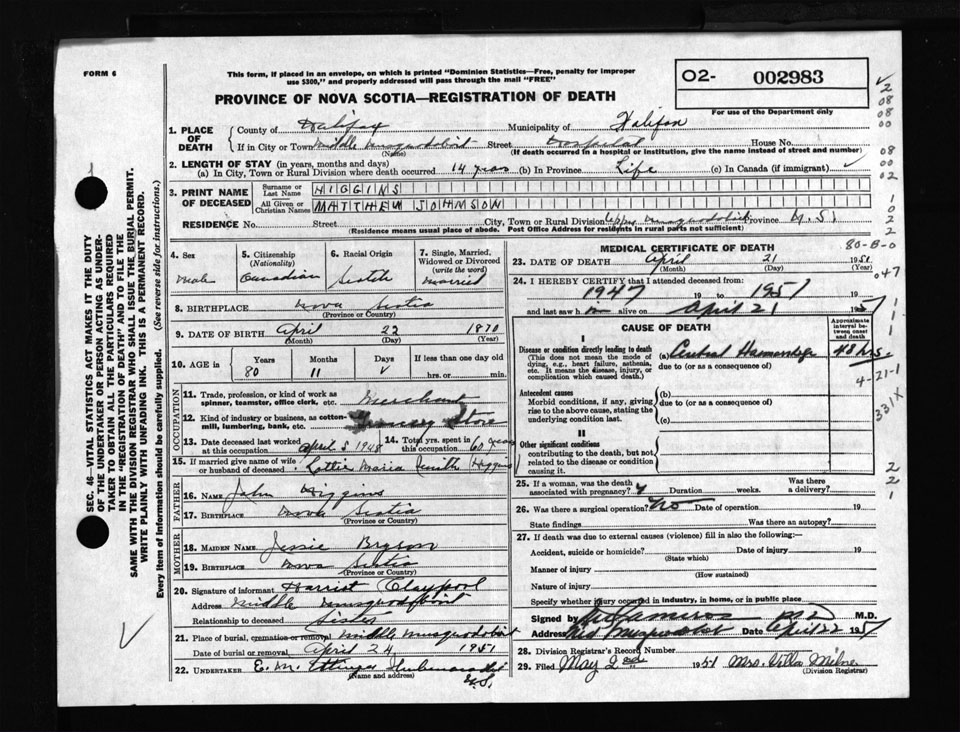 FORM 6
This form, if placed in an envelope, on which is printed "Dominion Statistics—Free, penalty for improper
use $300," and properly addressed will pass through the mail "FREE"
O2- 002983
For use of the Department only
PROVINCE OF NOVA SCOTIA—REGISTRATION OF DEATH
1. PLACE OF DEATH County of Halifax Municipality of Halifax
If in City or Town Middle Musquodoboit Street Hospital House No.
(Name) (If death occurred in a hospital or institution, give the name instead of street and number)
2. LENGTH OF STAY (in years, months and days)
(a) In City, Town or Rural Division where death occurred 14 years (b) In Province Life (c) In Canada (if immigrant)
3. PRINT NAME OF DECEASED Surname or Last Name HIGGINS
All Given or Christian Names MATTHEW JOHNSON
RESIDENCE No. Street City, Town or Rural Division Upper Musquodoboit Province N.S.
(Residence means usual place of abode. Post Office Address for residents in rural parts not sufficient)
4. Sex Male
5. Citizenship (Nationality) Canadian
6. Racial Origin Scotch
7. Single, Married, Widowed or Divorced (write the word) Married
8. BIRTHPLACE Nova Scotia
(Province or Country)
9. DATE OF BIRTH April 22 1870
(Month) (Day) (Year)
10. AGE in Years Months Days If less than one day old
80 11 hrs. or min.
OCCUPATION
11. Trade, profession, or kind of work as spinner, teamster, office clerk, etc. Merchant
12. Kind of industry or business, as cotton-mill, lumbering, bank, etc. Store
13. Date deceased last worked at this occupation April 5 1948 14. Total yrs. spent in this occupation 60 years
15. If married give name of wife or husband of deceased Lottie Maria Higgins
FATHER
16. NAME John Higgins
17. BIRTHPLACE Nova Scotia
(Province or Country)
MOTHER
18. MAIDEN NAME Jessie Bryson
19. BIRTHPLACE Nova Scotia
(Province or Country)
20. Signature of informant Harriet Claypool
Address Middle Musquodoboit
Relationship to deceased Sister
21. Place of burial, cremation or removal Middle Musquodoboit
Date of burial or removal April 24, 1951
22. UNDERTAKER E. M. Ettinger Shubenacadie
(Name and address) N.S.
MEDICAL CERTIFICATE OF DEATH
23. DATE OF DEATH April 21 1951
(Month) (Day) (Year)
24. I HEREBY CERTIFY that I attended deceased from:
1947 19 to 1951 19
and last saw h im alive on April 21 1951
CAUSE OF DEATH
Approximate interval between onset and death
I
Disease or condition directly leading to death (a) Cerebral Haemorrhage 48 hrs.
(This does not mean the mode of dying, e.g., heart failure, asthenia, etc. It means the disease, injury, or complication which caused death.)
due to (or as a consequence of)
Antecedent causes (b)
Morbid conditions, if any, giving rise to the above cause, stating the underlying condition last.
due to (or as a consequence of)
(c)
II
Other significant conditions
contributing to the death, but not related to the disease or condition causing it.
25. If a woman, was the death associated with pregnancy? Duration weeks. Was there a delivery?
26. Was there a surgical operation? No Date of operation 19
State findings Was there an autopsy?
27. If death was due to external causes (violence) fill in also the following:
Accident, suicide or homicide? Date of injury 19
(State which)
Manner of injury
(How sustained)
Nature of injury
Specify whether injury occurred in industry, in home, or in public place
Signed by Cameron M.D. M.D.
Address Mid Musquodoboit Date April 22 1951
28. Division Registrar's Record Number
29. Filed May 2nd 1951 Mrs. Villa Milne
(Division Registrar)
SEC. 46—VITAL STATISTICS ACT MAKES IT THE DUTY
OF THE UNDERTAKER OR PERSON ACTING AS UNDER-
TAKER TO OBTAIN ALL THE PARTICULARS REQUIRED
IN THE "REGISTRATION OF DEATH" AND TO FILE THE
SAME WITH THE DIVISION REGISTRAR WHO SHALL ISSUE THE BURIAL PERMIT.
WRITE PLAINLY WITH UNFADING INK. THIS IS A PERMANENT RECORD.
Every item of information should be carefully supplied. (See reverse side for instructions.)
2
08
08
00
08
00
02
1
0
2
2
80-B-0
047
1
1
1
1
4-21-1
331X
2
2
1